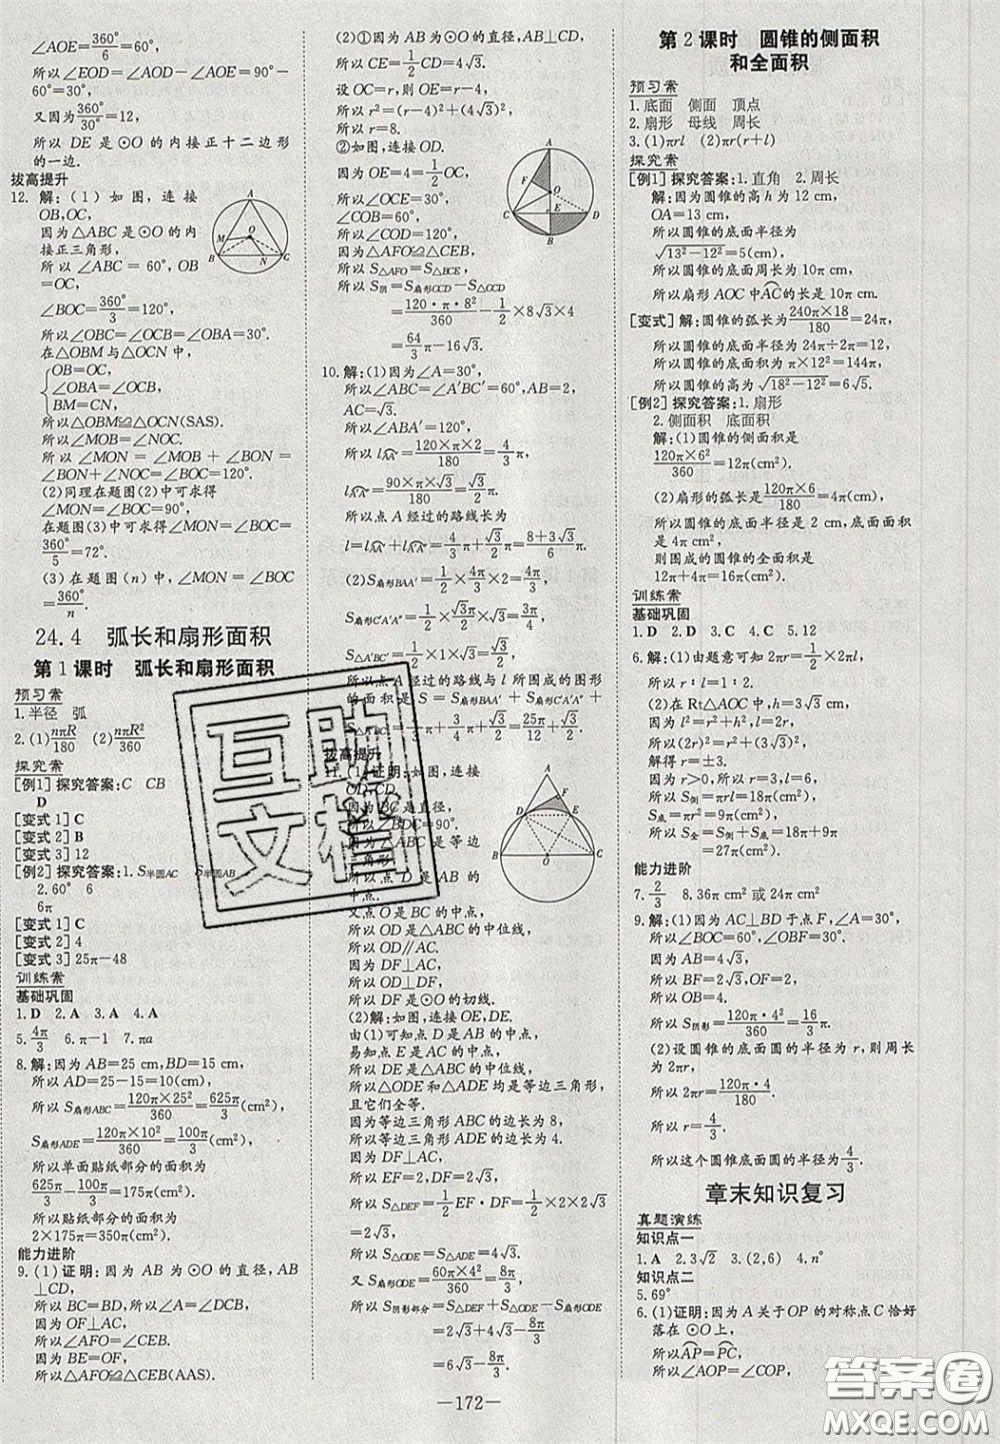 ∠AOE=360°/6=60°,
所以∠EOD=∠AOD-∠AOE=90°-
60°=30°.
又因为360°/30°=12,
所以 DE 是⊙O 的内接正十二边形
的一边.
拔高提升
12. 解:(1)如图,连接
OB,OC,
因为△ABC 是⊙O 的内
接正三角形,
所以∠ABC=60°,OB=
OC,
∠BOC=360°/3=120°,
所以∠OBC=∠OCB=∠OBA=30°.
在△OBM 与△OCN 中,
OB=OC,
∠OBA=∠OCB,
BM=CN,
所以△OBM≌△OCN(SAS).
所以∠MOB=∠NOC.
所以∠MON=∠MOB+∠BON=
∠BON+∠NOC=∠BOC=120°.
(2)同理在题图(2)中可求得
∠MON=∠BOC=90°.
在题图(3)中可求得∠MON=∠BOC=
360°/5=72°.
(3)在题图(n)中,∠MON=∠BOC=
360°/n.
24.4 弧长和扇形面积
第1课时 弧长和扇形面积
预习案
1.半径 弧
2.(1)nπR/180 (2)nπR²/360
探究案
[例1] 探究答案:C CB
D
[变式1] C
[变式2] B
[变式3] 12
[例2] 探究答案:1.S半圆AC S半圆AB
2.60° 6
6π
[变式1] C
[变式2] 4
[变式3] 25π-48
训练案
基础巩固
1.D 2.A 3.A 4.A
5.4π/3 6.π-1 7.πa
8.解:因为AB=25 cm,BD=15 cm,
所以AD=25-15=10(cm),
所以S扇形ABC=120π×25²/360=625π/3(cm²),
S扇形ADE=120π×10²/360=100π/3(cm²),
所以单面贴纸部分的面积为
625π/3-100π/3=175π(cm²),
所以贴纸部分的面积为
2×175π=350π(cm²).
能力进阶
9.(1)证明:因为 AB 为⊙O 的直径,AB
⊥CD,
所以BC=BD,所以∠A=∠DCB,
因为OF⊥AC,
所以∠AFO=∠CEB.
所以△AFO≌△CEB(AAS).
(2)①因为AB为⊙O的直径,AB⊥CD,
所以CE=1/2CD=4√3.
设OC=r,则OE=r-4,
所以r²=(r-4)²+(4√3)².
所以r=8.
②如图,连接OD.
因为OE=4=1/2OC,
所以∠OCE=30°,
∠COB=60°,
所以∠COD=120°,
因为△AFO≌△CEB,
所以S△AFO=S△BCE,
所以S阴=S扇形OCD-S△OCD
=120·π·8²/360-1/2×8√3×4
=64/3π-16√3.
10.解:(1)因为∠A=30°,
所以∠ABC=∠A′BC′=60°,AB=2,
AC=√3.
所以∠ABA′=120°,
=120×π×2/180=4/3π,
=90×π×√3/180=√3/2π,
所以点A经过的路线长为
=4/3π+√3/2π=8+3√3/6π.
(2)S扇形BAA′=1/2×4/3π×2=4/3π,
S扇形C′A′A″=1/2×√3/2π×√3=3/4π,
所以点A经过的路线与l所围成的图形
的面积是
拔高提升
11.(1)证明:如图,连接
OD,CD,
因为BC是直径,
所以∠BDC=90°.
因为△ABC是等边
又点O是BC的中点,
所以OD是△ABC的中位线,
所以OD∥AC.
因为DF⊥AC,
所以OD⊥DF,
所以DF是⊙O的切线.
(2)解:如图,连接OE,DE.
由(1)可知点D是AB的中点,
易知点E是AC的中点,
所以DE是△ABC的中位线,
所以△ODE和△ADE是等边三角形,
且它们全等.
因为等边三角形ABC的边长为8,
所以等边三角形ADE的边长为4.
因为DF⊥AC,
所以EF=2,DF=2√3,
所以S△DEF=1/2EF·DF=1/2×2×
2√3=2√3.
所以S△ODE=S△ADE=4√3.
又S扇形ODE=60π×4²/360=8π/3,
所以S阴影部分=S△DEF+S△ODE-S扇形ODE
=2√3+4√3-8π/3
=6√3-8π/3.
第2课时 圆锥的侧面积
和全面积
预习案
1.底面 侧面 顶点
2.扇形 母线 周长
3.(1)πrl (2)πr(r+l)
探究案
[例1] 探究答案:1.直角 2.周长
解:因为圆锥的高h为12 cm,
OA=13 cm,
所以圆锥的底面半径为
√13²-12²=5(cm),
所以圆锥的底面周长为10π cm,
所以扇形AOC中AC的长是10π cm.
[变式]解:圆锥的弧长为240π×18/180=24π,
所以圆锥的底面半径为24π÷2π=12,
所以圆锥的底面面积为π×12²=144π,
所以圆锥的高为√18²-12²=6√5.
[例2] 探究答案:1.扇形
2.侧面积 底面积
解:(1)圆锥的侧面积是
120π×6²/360=12π(cm²).
(2)扇形的弧长是120π×6/180=4π(cm),
所以圆锥的底面半径是2 cm,底面面积
是4π cm²,
则围成的圆锥的全面积是
12π+4π=16π(cm²).
训练案
基础巩固
1.D 2.D 3.D 4.C 5.12
6.解:(1)由题意可知1/2×2πl=2πr,
所以r∶l=1∶2.
(2)在Rt△AOC中,h=3√3 cm,
因为l²=r²+h²,l=2r,
所以(2r)²=(3√3)²+r².
解得r=±3.
因为r>0,所以r=3.
所以S侧=πrl=18π(cm²),
S底=πr²=9π(cm²),
所以S全=S侧+S底=18π+9π
=27π(cm²).
能力进阶
7.2/3 8.36π cm²或24π cm²
9.解:(1)因为AC⊥BD于点F,∠A=30°,
所以∠BOC=60°,∠OBF=30°.
因为AC=4√3,
所以BF=2√3,OF=2,
所以OB=4.
所以S阴影=120π·4²/360=16/3π.
(2)设圆锥的底面圆的半径为r,则周长
为2πr,
所以2πr=120π·4/180.
所以r=4/3.
所以这个圆锥底面圆的半径为4/3.
章末知识复习
真题演练
知识点一
1.A 2.3√2 3.(2,6) 4.n°
知识点二
5.69°
6.(1)证明:因为A关于OP的对称点C恰好
落在⊙O上,
所以AP=PC,
所以∠AOP=∠COP,
—172—
互助
文档
答案圈
MXQE.COM